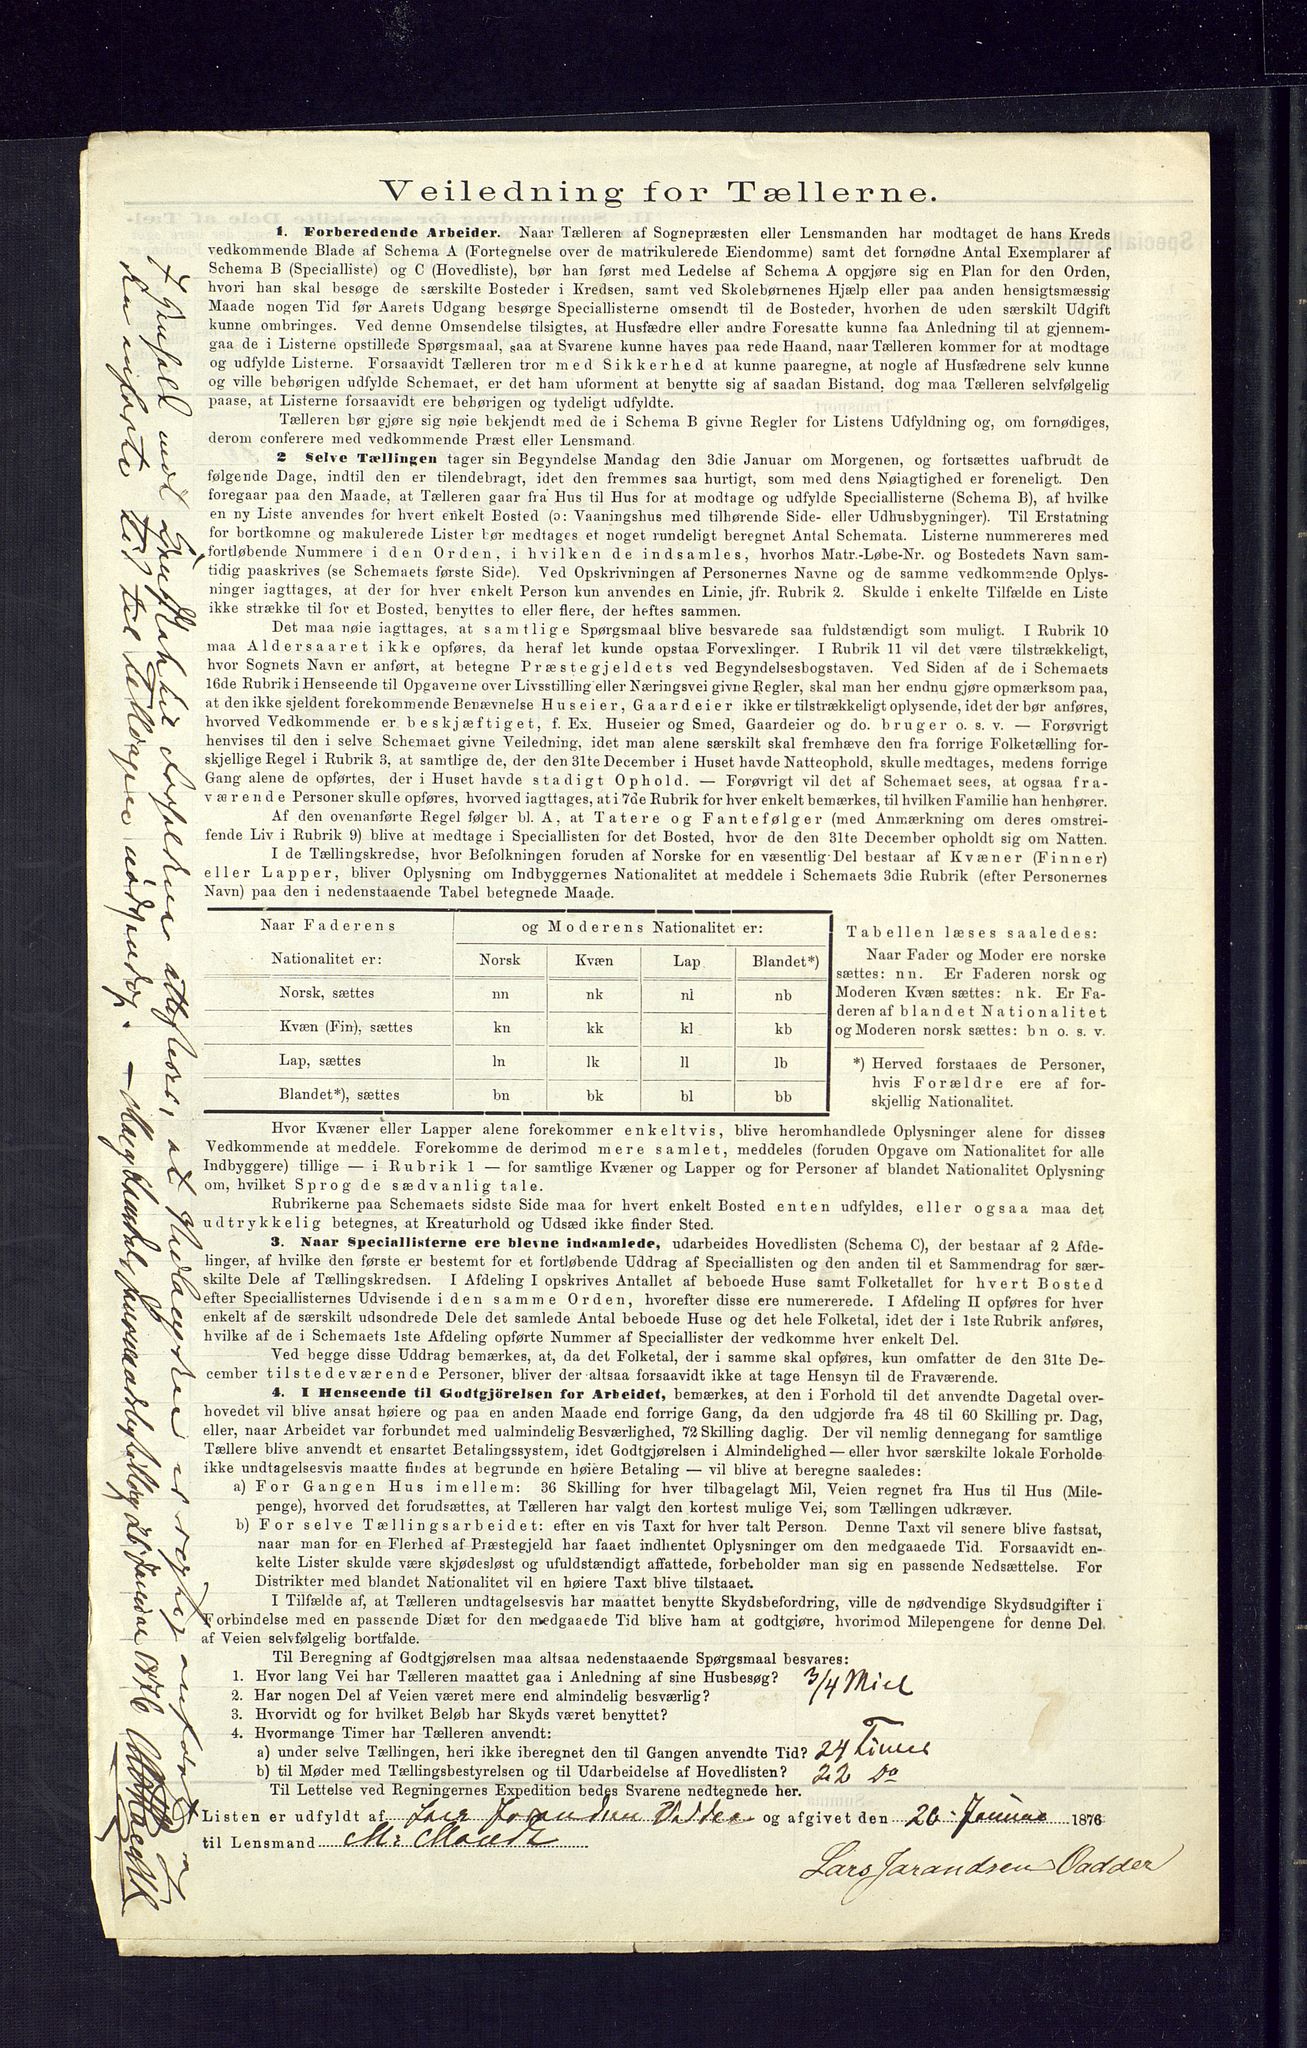 Veiledning for Tællerne.
1. Forberedende Arbeider. Naar Tælleren af Sognepræsten eller Lensmanden har modtaget de hans Kreds
vedkommende Blade af Schema A (Fortegnelse over de matrikulerede Eiendomme) samt det fornødne Antal Exemplarer af
Schema B (Specialliste) og C (Hovedliste), bør han først med Ledelse af Schema A opgjøre sig en Plan for den Orden,
hvori han skal besøge de særskilte Bosteder i Kredsen, samt ved Skolebørnenes Hjælp eller paa anden hensigtsmæssig
Maade nogen Tid før Aarets Udgang besørge Speciallisterne omsendt til de Bosteder, hvorhen de uden særskilt Udgift
kunne ombringes. Ved denne Omsendelse tilsigtes, at Husfædre eller andre Foresatte kunne faa Anledning til at gjennem-
gaa de i Listerne opstillede Spørgsmaal, saa at Svarene kunne haves paa rede Haand, naar Tælleren kommer for at modtage
og udfylde Listerne. Forsaavidt Tælleren tror med Sikkerhed at kunne paaregne, at nogle af Husfædrene selv kunne
og ville behørigen udfylde Schemaet, er det ham uforment at benytte sig af saadan Bistand, dog maa Tælleren selvfølgelig
paase, at Listerne forsaavidt ere behørigen og tydeligt udfyldte.
Tælleren bør gjøre sig nøie bekjendt med de i Schema B givne Regler for Listens Udfyldning og, om fornødiges,
derom conferere med vedkommende Præst eller Lensmand.
2 Selve Tællingen tager sin Begyndelse Mandag den 3die Januar om Morgenen, og fortsættes uafbrudt de
følgende Dage, indtil den er tilendebragt, idet den fremmes saa hurtigt, som med dens Nøiagtighed er foreneligt. Den
foregaar paa den Maade, at Tælleren gaar fra Hus til Hus for at modtage og udfylde Speciallisterne (Schema B), af hvilke
en ny Liste anvendes for hvert enkelt Bosted (ɔ: Vaaningshus med tilhørende Side- eller Udhusbygninger). Til Erstatning
for bortkomne og makulerede Lister bør medtages et noget rundeligt beregnet Antal Schemata. Listerne nummereres med
fortløbende Nummere i den Orden, i hvilken de indsamles, hvorhos Matr.-Løbe-Nr. og Bostedets Navn sam-
tidig paaskrives (se Schemaets første Side). Ved Opskrivningen af Personernes Navne og de samme vedkommende Oplys-
ninger iagttages, at der for hver enkelt Person kun anvendes en Linie, jfr. Rubrik 2. Skulde i enkelte Tilfælde en Liste
ikke strække til for et Bosted, benyttes to eller flere, der heftes sammen.
Det maa nøie iagttages, at samtlige Spørgsmaal blive besvarede saa fuldstændigt som muligt. I Rubrik 10
maa Aldersaaret ikke opføres, da heraf let kunde opstaa Forvexlinger. I Rubrik 11 vil det være tilstrækkeligt,
hvor Sognets Navn er anført, at betegne Præstegjeldets ved Begyndelsesbogstaven. Ved Siden af de i Schemaets
16de Rubrik i Henseende til Opgaverne over Livsstilling eller Næringsvei givne Regler, skal man her endnu gjøre opmærksom paa,
at den ikke sjeldent forekommende Benævnelse Huseier, Gaardeier ikke er tilstrækkeligt oplysende, idet der bør anføres,
hvorved Vedkommende er beskjæftiget, f. Ex. Huseier og Smed, Gaardeier og do. bruger o. s. v. — Forøvrigt
henvises til den i selve Schemaet givne Veiledning, idet man alene særskilt skal fremhæve den fra forrige Folketælling for-
skjellige Regel i Rubrik 3, at samtlige de, der den 31te December i Huset havde Natteophold, skulle medtages, medens forrige
Gang alene de opførtes, der i Huset havde stadigt Ophold. — Forøvrigt vil det af Schemaet sees, at ogsaa fra-
værende Personer skulle opføres, hvorved iagttages, at i 7de Rubrik for hver enkelt bemærkes, til hvilken Familie han henhører.
Af den ovenanførte Regel følger bl. A, at Tatere og Fantefølger (med Anmærkning om deres omstrei-
fende Liv i Rubrik 9) blive at medtage i Speciallisten for det Bosted, hvor de den 31te December opholdt sig om Natten.
I de Tællingskredse, hvor Befolkningen foruden af Norske for en væsentlig Del bestaar af Kvæner (Finner)
eller Lapper, bliver Oplysning om Indbyggernes Nationalitet at meddele i Schemaets 3die Rubrik (efter Personernes
Navn) paa den i nedenstaaende Tabel betegnede Maade.
Naar Faderens og Moderens Nationalitet er:
Nationalitet er: Norsk Kvæn Lap Blandet*)
Norsk, sættes nn nk nl nb
Kvæn (Fin), sættes kn kk kl kb
Lap, sættes ln lk ll lb
Blandet*), sættes bn bk bl bb
Tabellen læses saaledes:
Naar Fader og Moder ere norske
sættes: nn. Er Faderen norsk og
Moderen Kvæn sættes: nk. Er Fa-
deren af blandet Nationalitet
og Moderen norsk sættes: bn o. s. v.
*) Herved forstaaes de Personer,
hvis Forældre ere af for-
skjellig Nationalitet.
Hvor Kvæner eller Lapper alene forekommer enkeltvis, blive heromhandlede Oplysninger alene for disses
Vedkommende at meddele. Forekomme de derimod mere samlet, meddeles (foruden Opgave om Nationalitet for alle
Indbyggere) tillige — i Rubrik 1 — for samtlige Kvæner og Lapper og for Personer af blandet Nationalitet Oplysning
om, hvilket Sprog de sædvanlig tale.
Rubrikerne paa Schemaets sidste Side maa for hvert enkelt Bosted enten udfyldes, eller ogsaa maa det
udtrykkelig betegnes, at Kreaturhold og Udsæd ikke finder Sted.
3. Naar Speciallisterne ere blevne indsamlede, udarbeides Hovedlisten (Schema C), der bestaar af 2 Afde-
linger, af hvilke den første er bestemt for et fortløbende Uddrag af Speciallisten og den anden til et Sammendrag for sær-
skilte Dele af Tællingskredsen. I Afdeling I opskrives Antallet af beboede Huse samt Folketallet for hvert Bosted
efter Speciallisternes Udvisende i den samme Orden, hvorefter disse ere numererede. I Afdeling II opføres for hver
enkelt af de særskilt udsondrede Dele det samlede Antal beboede Huse og det hele Folketal, idet der i 1ste Rubrik anføres,
hvilke af de i Schemaets 1ste Afdeling opførte Nummer af Speciallister der vedkomme hver enkelt Del.
Ved begge disse Uddrag bemærkes, at, da det Folketal, der i samme skal opføres, kun omfatter de den 31te De-
cember tilstedeværende Personer, bliver der altsaa forsaavidt ikke at tage Hensyn til de Fraværende.
4. I Henseende til Godtgjörelsen for Arbeidet, bemærkes, at den i Forhold til det anvendte Dagetal over-
hovedet vil blive ansat høiere og paa en anden Maade end forrige Gang, da den udgjorde fra 48 til 60 Skilling pr. Dag,
eller, naar Arbeidet var forbundet med ualmindelig Besværlighed, 72 Skilling daglig. Der vil nemlig dennegang for samtlige
Tællere blive anvendt et ensartet Betalingssystem, idet Godtgjørelsen i Almindelighed — eller hvor særskilte lokale Forholde
ikke undtagelsesvis maatte findes at begrunde en høiere Betaling — vil blive at beregne saaledes:
a) For Gangen Hus imellem: 36 Skilling for hver tilbagelagt Mil, Veien regnet fra Hus til Hus (Mile-
penge), hvorved det forudsættes, at Tælleren har valgt den kortest mulige Vei, som Tællingen udkræver.
b) For selve Tællingsarbeidet: efter en vis Taxt for hver talt Person. Denne Taxt vil senere blive fastsat,
naar man for en Flerhed af Præstegjeld har faaet indhentet Oplysninger om den medgaaede Tid. Forsaavidt en-
kelte Lister skulde være skjødesløst og ufuldstændigt affattede, forbeholder man sig en passende Nedsættelse. For
Distrikter med blandet Nationalitet vil en høiere Taxt blive tilstaaet.
I Tilfælde af, at Tælleren undtagelsesvis har maattet benytte Skydsbefordring, ville de nødvendige Skydsudgifter i
Forbindelse med en passende Diæt for den medgaaede Tid blive ham at godtgjøre, hvorimod Milepengene for denne Del
af Veien selvfølgelig bortfalde.
Til Beregning af Godtgjørelsen maa altsaa nedenstaaende Spørgsmaal besvares:
1. Hvor lang Vei har Tælleren maattet gaa i Anledning af sine Husbesøg? 3/4 Miel
2. Har nogen Del af Veien været mere end almindelig besværlig?
3. Hvorvidt og for hvilket Beløb har Skyds været benyttet?
4. Hvormange Timer har Tælleren anvendt:
a) under selve Tællingen, heri ikke iberegnet den til Gangen anvendte Tid? 24 Timer
b) til Møder med Tællingsbestyrelsen og til Udarbeidelse af Hovedlisten? 22 Do
Til Lettelse ved Regningernes Expedition bedes Svarene nedtegnede her.
Listen er udfyldt af Lars Jarandsen Vadder og afgivet den 20. Januar 1876
til Lensmand Mr Mandt
Lars Jarandsen Vadder